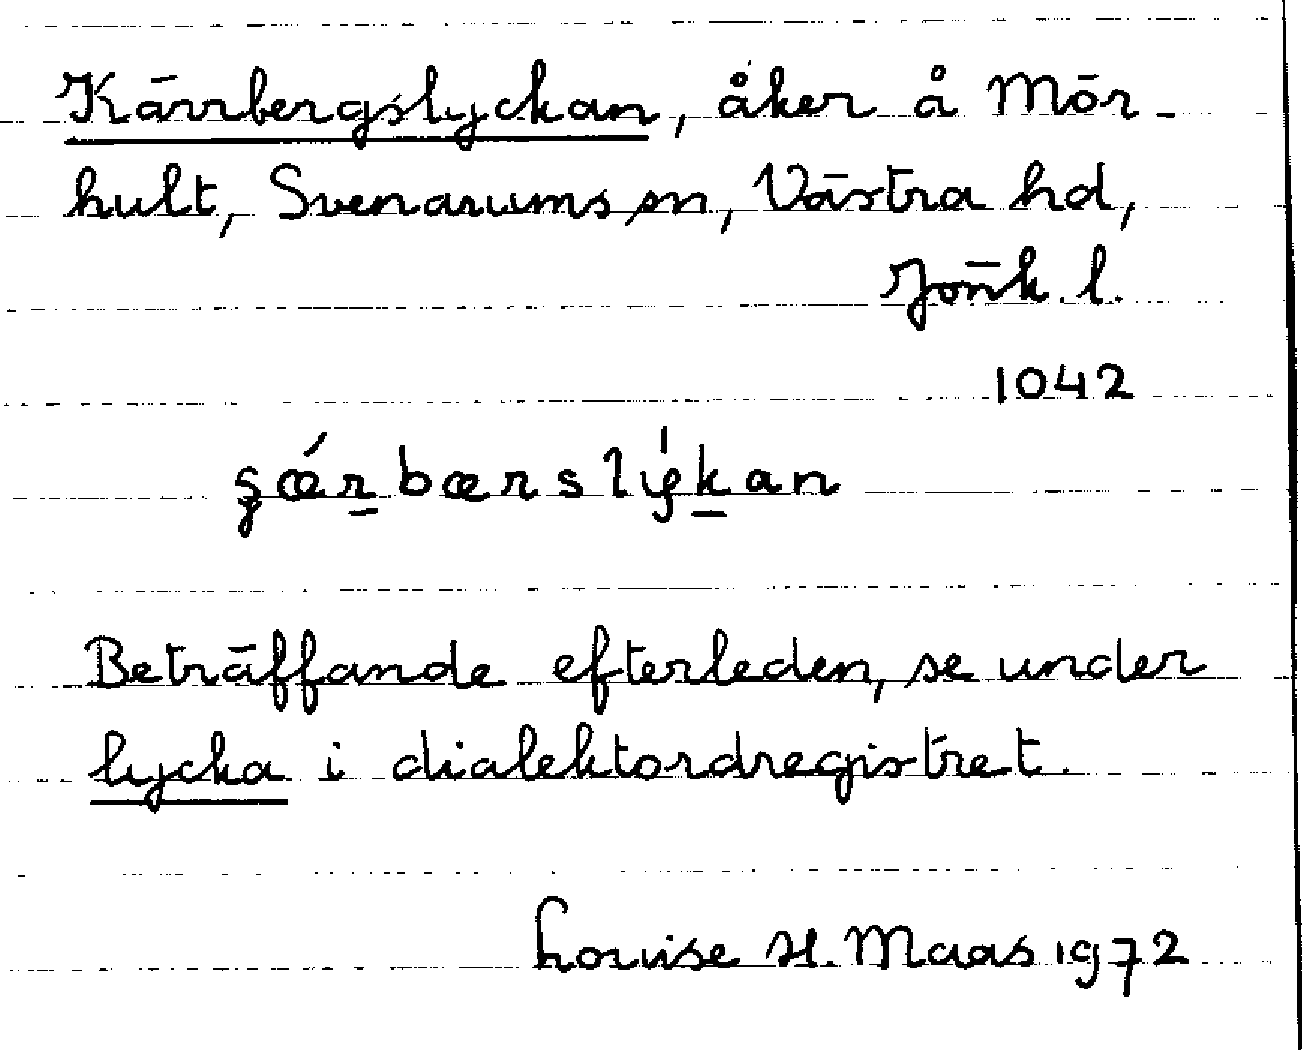 Kärrbergslyckan, åker å Mör-
hult, Svenarums sn, Västra hd,
Jönk. l.
1042
şǽr̲bærslyk̲an
Beträffande efterleden, se under
lycka i dialektordregistret.
Louise H. Maas 1972